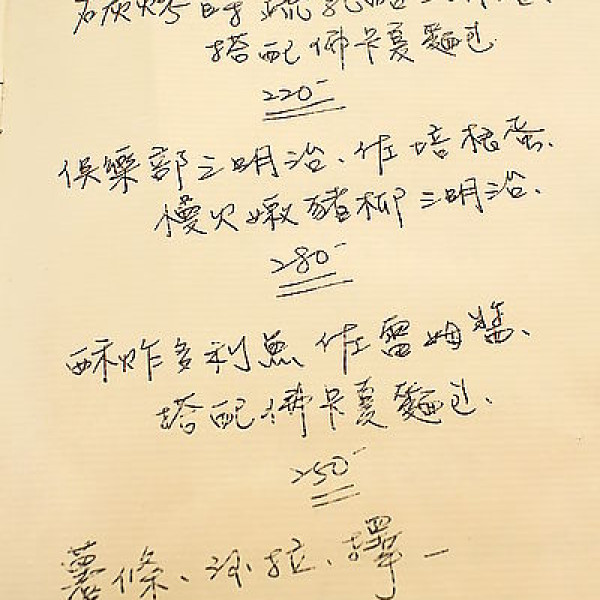 石炭烤時蔬乳酪
搭配佛卡夏麵包
220-
俱樂部三明治、佐培根蛋、
慢火嫩豬柳三明治、
280-
酥炸多利魚佐雷姆醬、
搭配佛卡夏麵包、
250-
薯條、沙拉、擇一